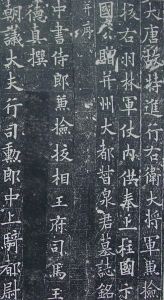 大唐故特進行右衛大將軍兼撿
校右羽林軍仗內供奉上柱國卞
國公贈并州大都督泉君墓誌銘
并序
中書侍郎兼撿校相王府司馬王
德真撰
朝議大夫行司勳郎中上騎都尉